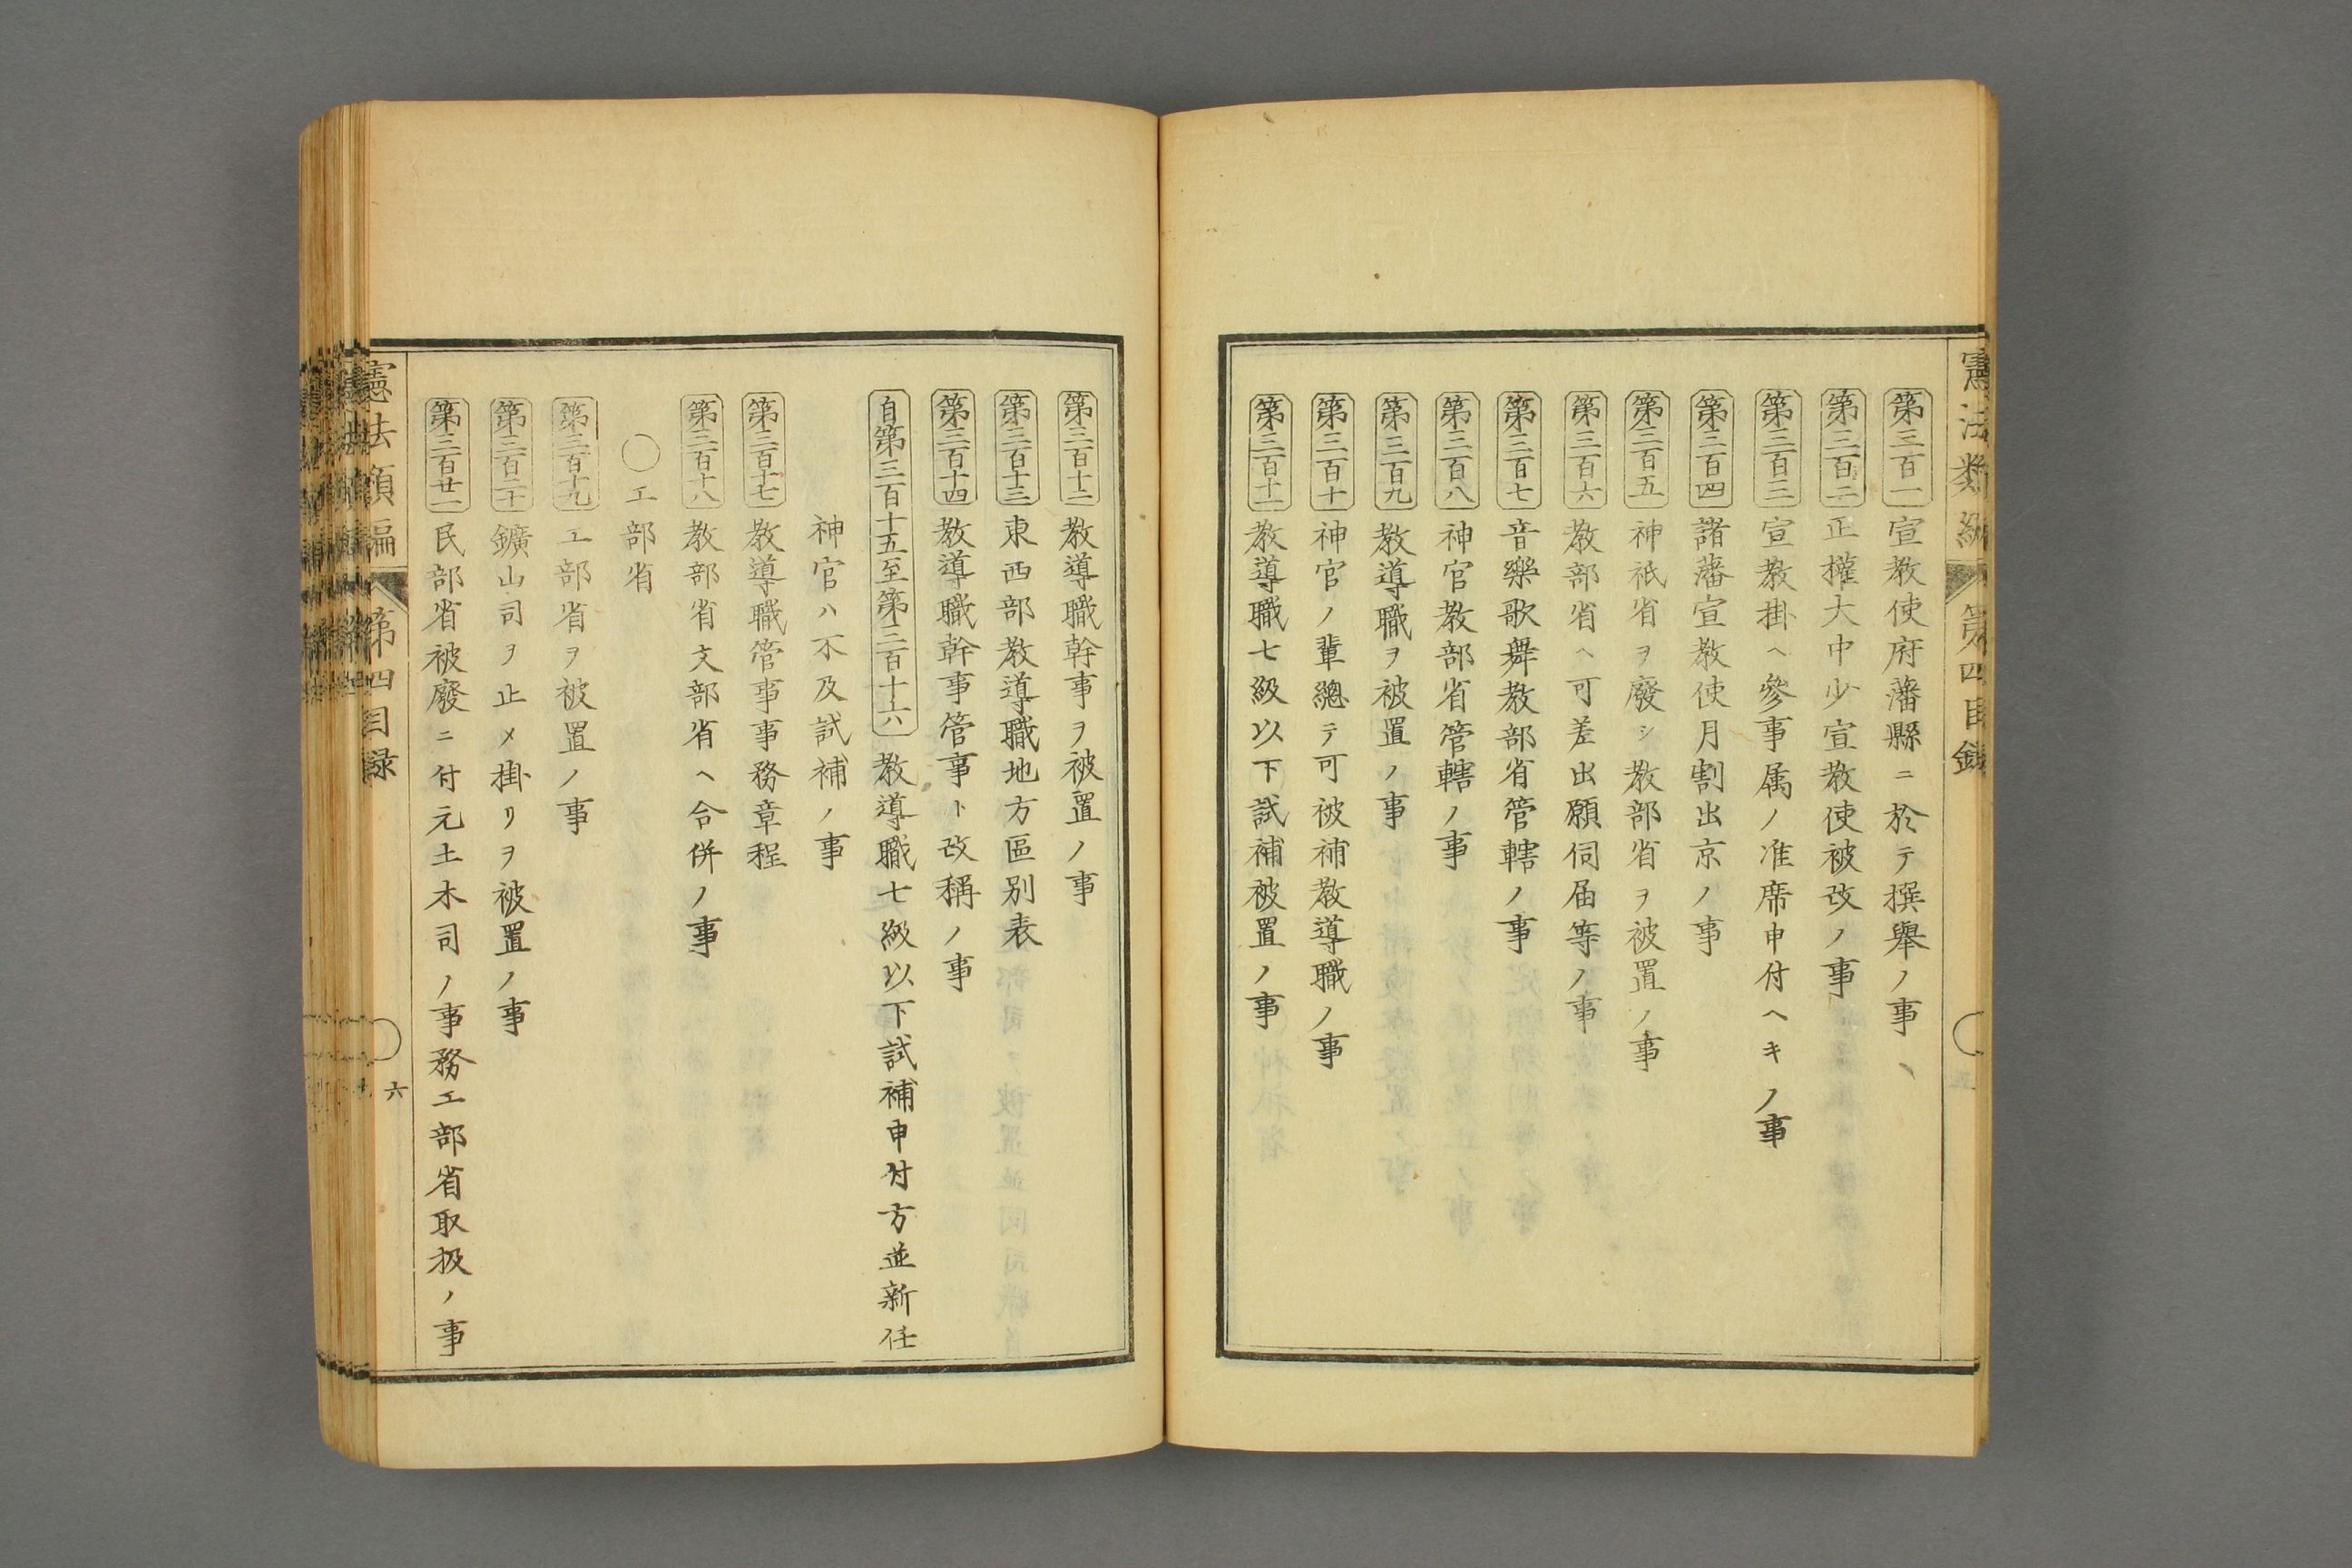 憲法類編 第四目錄
第三百一 宣教使府藩縣ニ於テ撰舉ノ事
第三百二 正權大中少宣教使被改ノ事
第三百三 宣教掛ヘ參事属ノ准席申付ヘキノ事
第三百四 諸藩宣教使月割出京ノ事
第三百五 神祇省ヲ廢シ教部省ヲ被置ノ事
第三百六 教部省ヘ可差出願伺届等ノ事
第三百七 音樂歌舞教部省管轄ノ事
第三百八 神官教部省管轄ノ事
第三百九 教導職ヲ被置ノ事
第三百十 神官ノ輩總テ可被補教導職ノ事
第三百十一 教導職七級以下試補被置ノ事
第三百十二 教導職幹事ヲ被置ノ事
第三百十三 東西部教導職地方區別表
第三百十四 教導職幹事管事ト改稱ノ事
自第三百十五至第三百十六 教導職七級以下試補申付方並新任
神官ハ不及試補ノ事
第三百十七 教導職管事事務章程
第三百十八 教部省文部省ヘ合併ノ事
〇工部省
第三百十九 工部省ヲ被置ノ事
第三百二十 鑛山司ヲ止メ掛リヲ被置ノ事
第三百廿一 民部省被廢ニ付元土木司ノ事務工部省取扱ノ事
憲法類編 第四目録
六